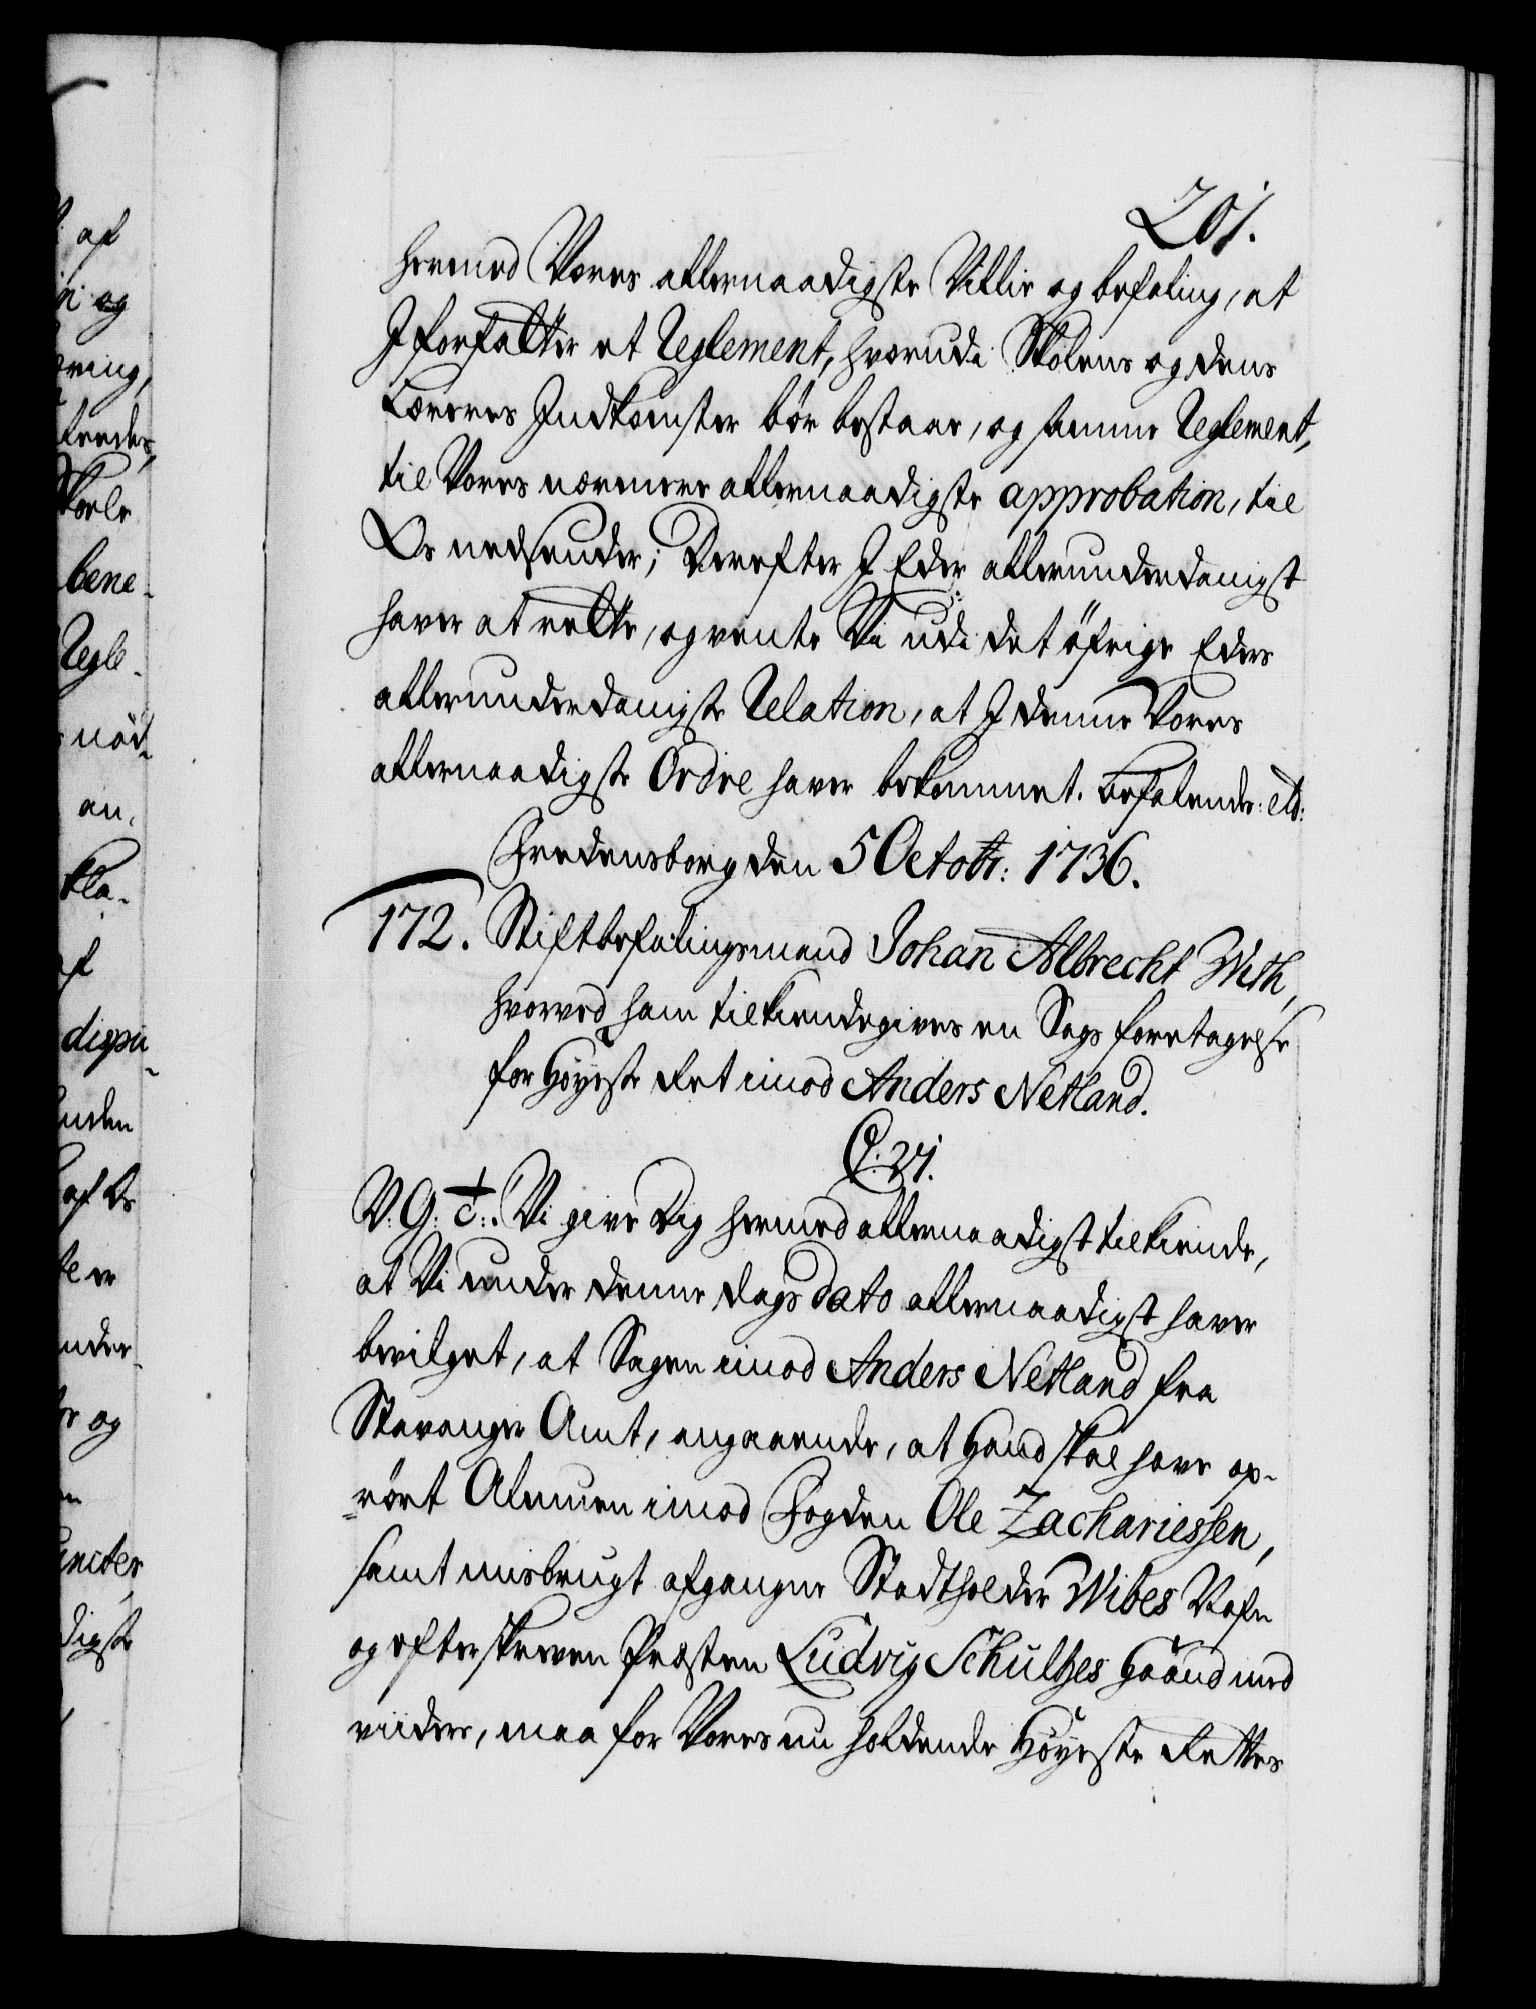 201.
af
og
ering,
kendes,
Skole
bene-
Regle-
nöd-
an,
kla-
af
dispu-
inden
af Os
nder-
og
digste
hermed Vores allernaadigste Villie og befaling, at
I forfatter et Reglement, hvorudi Skolens og dens
Læreres Indkomster bör bestaae, og samme Reglement,
til Vores nærmere allernaadigste approbation, til
Os nedsender; Derefter I Eder allerunderdanigst
haver at rette, og vente Vi udi det öfrige Eders
allerunderdanigste Relation, at I denne Vores
allernaadigste Ordre haver bekommet. Befalende: etc:
Fredensborg den 5 Octobr: 1736.
172. Stiftbefalingsmand Johan Albrecht With,
hvorved ham tilkiendegives en Sags foretagelse
for Høyeste Ret imod Anders Netland.
C. 21.
V: G: T:. Vi give Dig hermed allernaadigst tilkiende,
at Vi under denne Dags dato allernaadigst haver
bevilget, at Sagen imod Anders Netland fra
Stavanger Amt, angaaende, at Hand skal have op-
rört Almuen imod Fogden Ole Zachariessen,
samt misbrugt afgangne Stadtholder Wibes Nafn
og efterskreven Præsten Ludvig Schulthes Haand med
viidere, maa for Vores nu holdende Høyeste Rettes